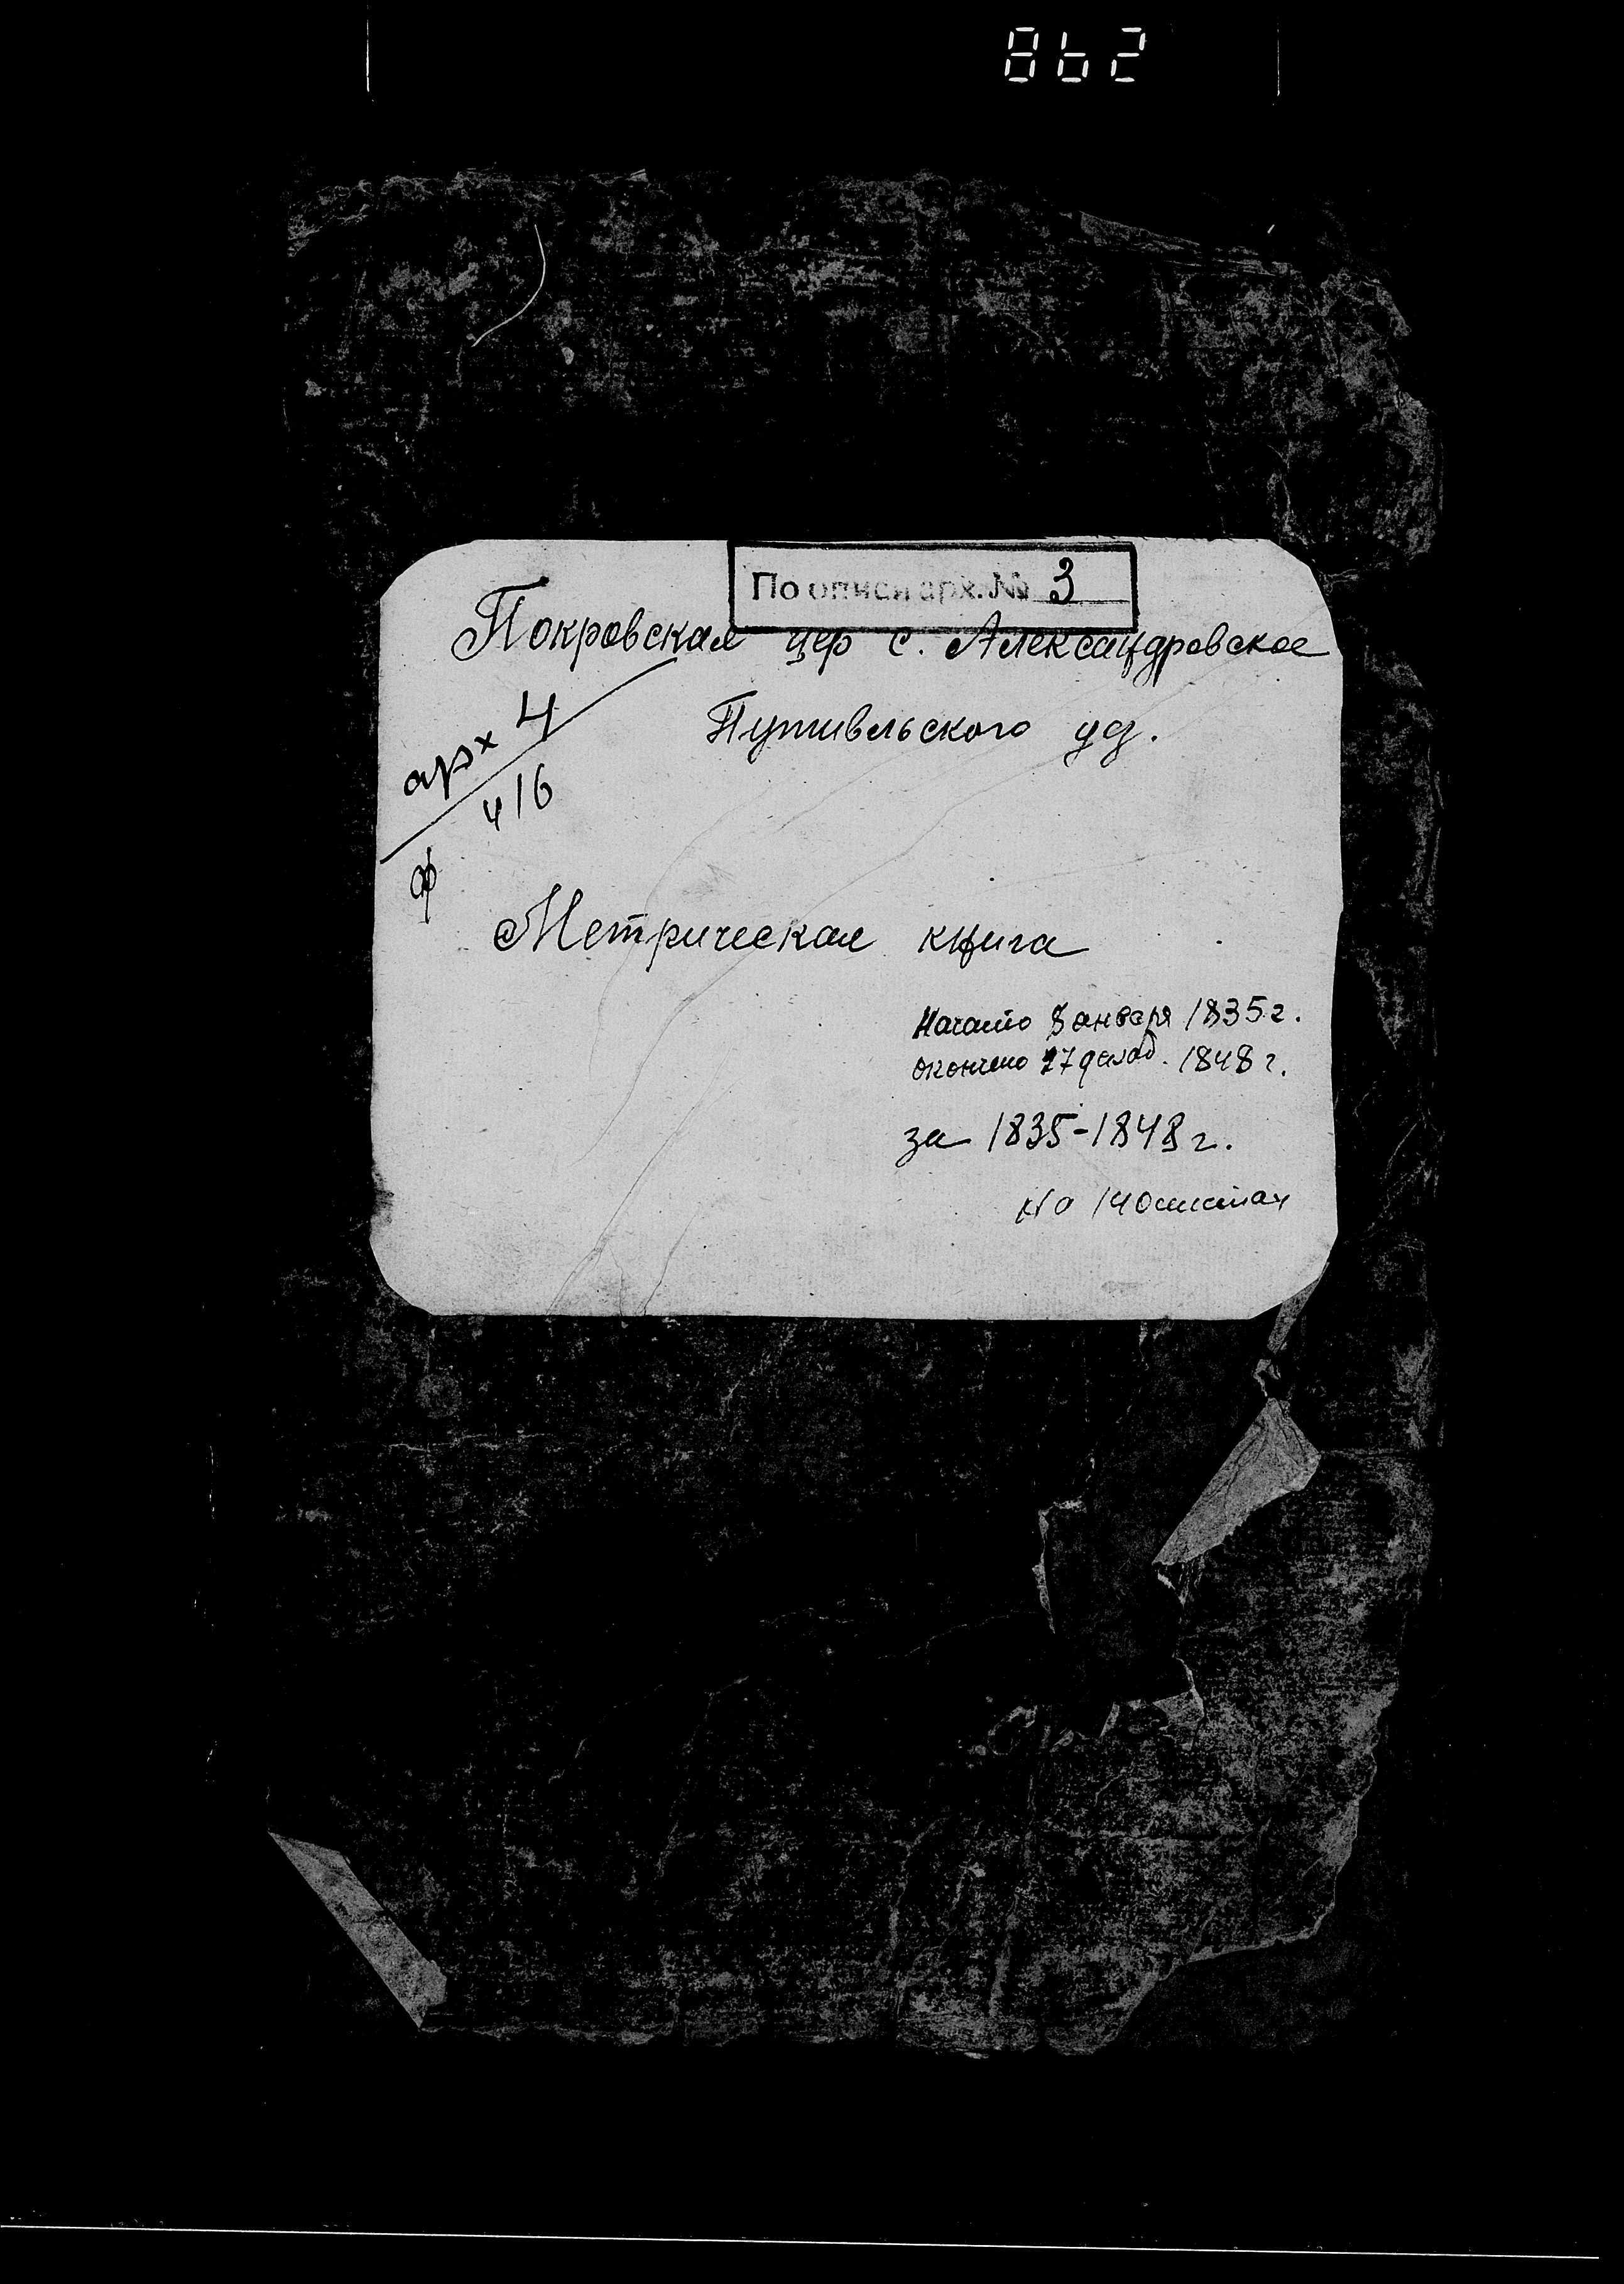 862
По описи арх. № 3
Покровская цер с. Александровское
Путивльского уд.
арх 4
ф 416
Метрическая книга
Начато 8 января 1835 г.
окончено 27 декаб. 1848 г.
за 1835-1848 г.
На 140 листах